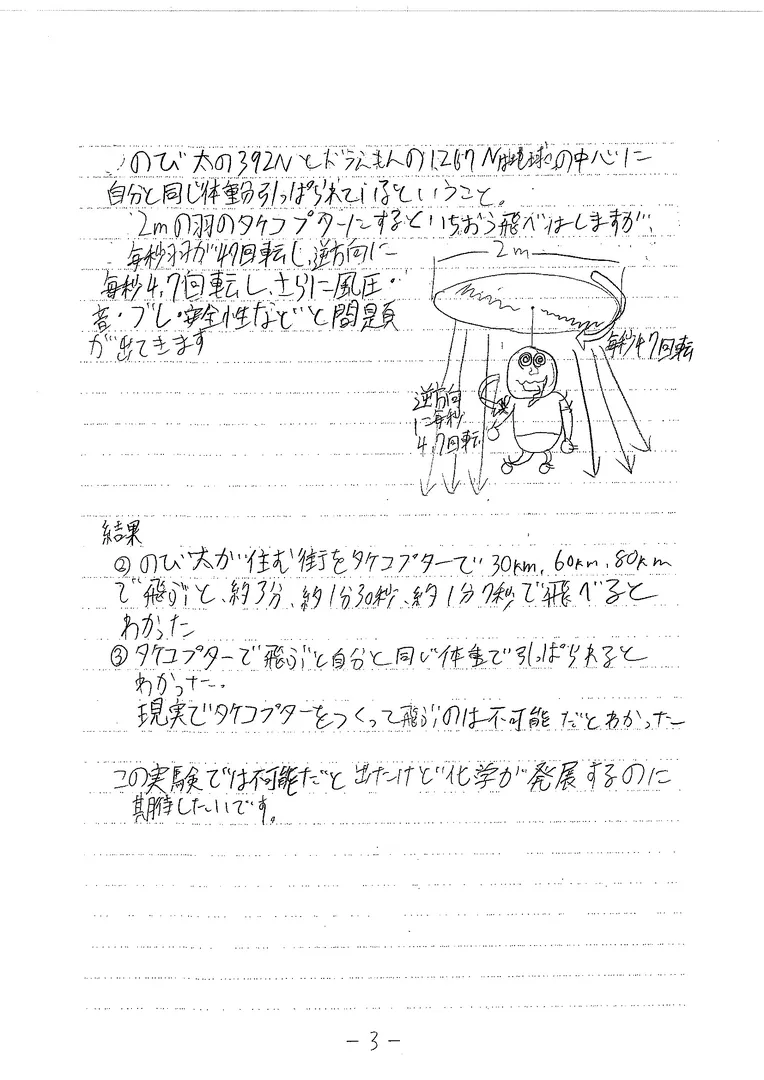 のび太の392NとドラえもんのI,267Nは地球の中心に
自分と同じ体重分引っぱられているということ。
2mの羽のタケコプターにするといちおう飛べはしますが、
毎秒羽が47回転し、逆方向に
毎秒4,7回転し、さらに風圧・
音・ブレ・安全性などと問題
が出てきます
2m
毎秒47回転
逆方向
に毎秒
4,7回転
結果
② のび太が住む街をタケコプターで30km, 60km, 80km
で飛ぶと、約3分、約1分30秒、約1分7秒で飛べると
わかった
③ タケコプターで飛ぶと自分と同じ体重で引っぱられると
わかった..
現実でタケコプターをつくって飛ぶのは不可能だとわかった
この実験では不可能だと出たけど化学が発展するのに
期待したいです。
- 3 -